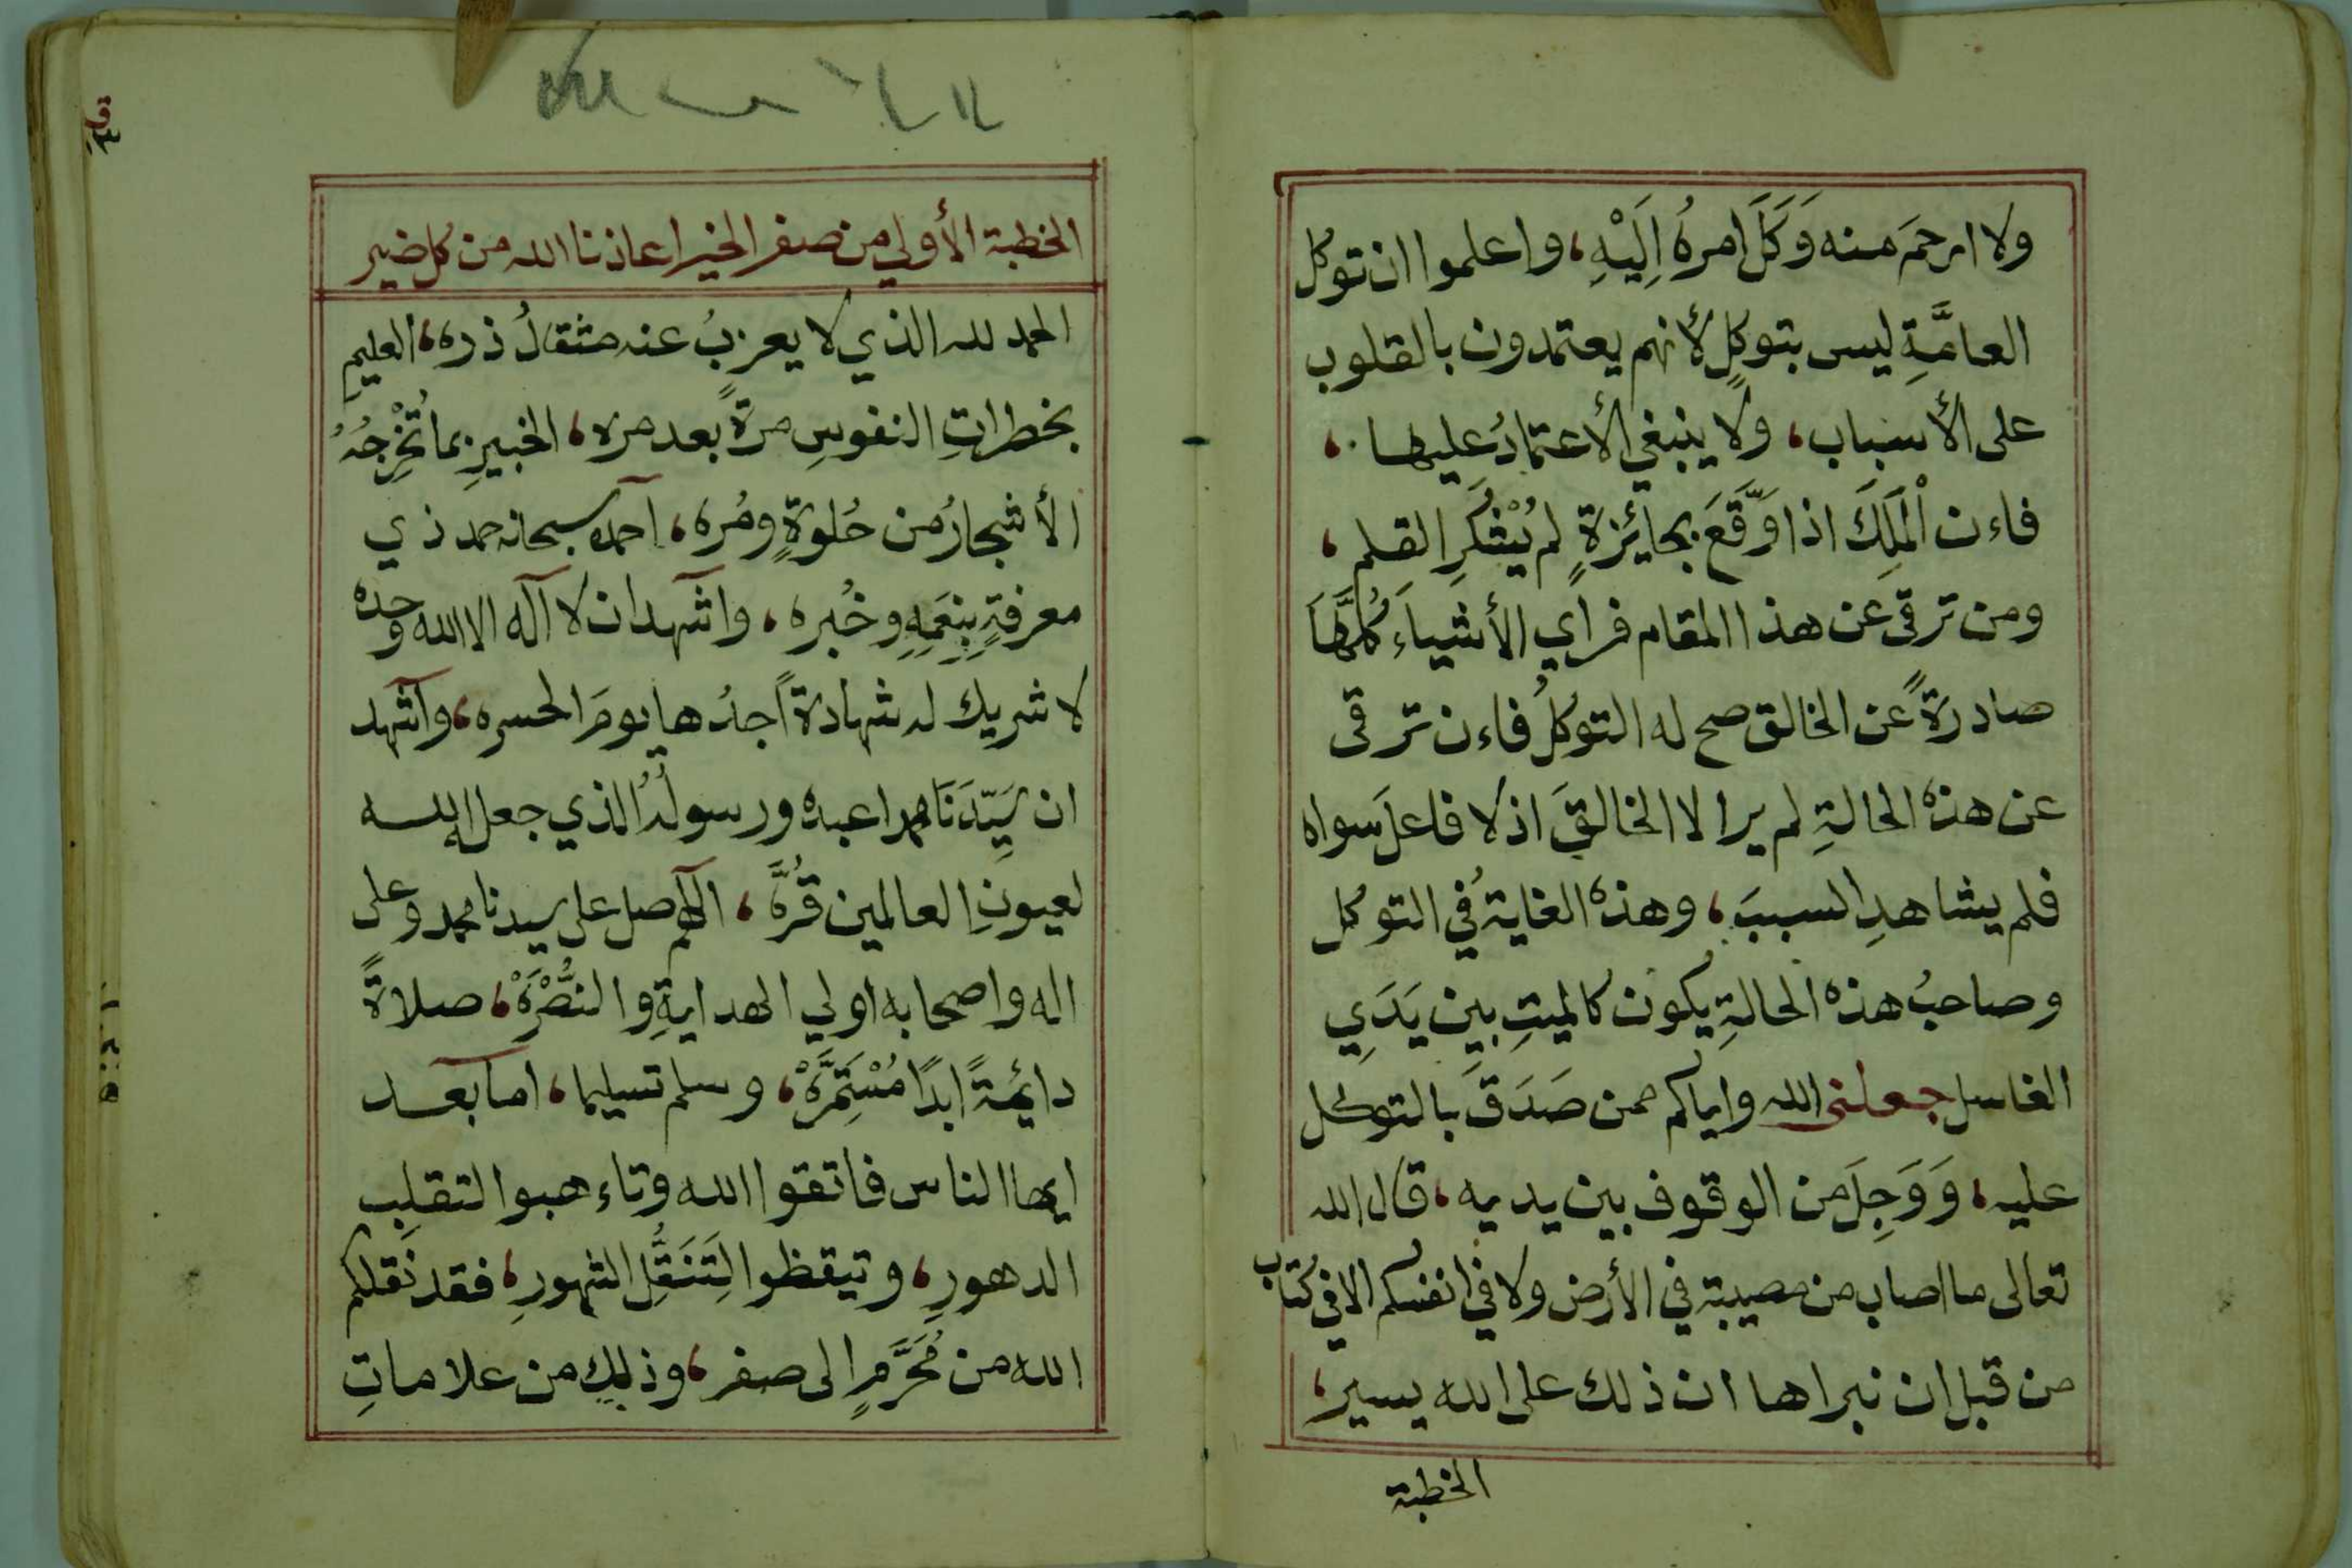 ولا ارحمَ منه وَكَلَ امرهُ اِلَيْهِ، واعلموا ان توكل
العامَّةِ ليس بتوكلٍ لأنهم يعتمدون بالقلوب
على الأسباب، ولا ينبغي الأعتمادُ عليها،
فاءن الْمَلِكَ اذا وَّقَعَ بجائزةٍ لم يُشْكَرِ القلم،
ومن ترقى عن هذا المقام فراي الأشياءَ كُلَّهَا
صادرةً عن الخالق صح له التوكلُ فاءن ترقى
عن هذه الحالةِ لم يرا لا الخالقَ اذ لا فاعلَ سواه
فلم يشاهدِ السببَ، وهذه الغايةُ في التوكل
وصاحبُ هذه الحالةِ يكون كالميتِ بين يَدَيِ
الغاسل جعلني الله واياكم ممن صَدَقَ بالتوكل
عليه، وَوَجِلَ من الوقوف بين يديه، قال الله
تعالى ما اصاب من مصيبة في الأرض ولا في انفسكم الا في كتاب
من قبل ان نبراها ان ذلك على الله يسير،
الخطبة
الخطبة الأولي من صفر الخير اعاذنا الله من كل ضير
الحمد لله الذي لا يعزبُ عنه مثقالُ ذره، العليم
بخطراتِ النفوسِ مرةً بعد مره، الخبيرِ بما تُخْرِجُهُ
الأشجارُ من حُلوةٍ ومُره، احمده سبحانه حمد ذي
معرفةٍ بِنِعَمِهِ وخُبره، واشهد ان لا اله الا الله وحده
لا شريك له شهادةً اجدُها يومَ الحسره، واشهد
ان سَيِّدَنَا محمدا عبده ورسولُهُ الذي جعله الله
لعيونِ العالمين قُرَّه، اللهم صل على سيدنا محمد وعلى
اله واصحابه اولي الهدايةِ والنُّصْرَهْ، صلاةً
دائمةً ابدًا مُسْتَمِرَّهْ، وسلم تسليما، اما بعد
ايها الناس فاتقوا الله وتاءهبوا لتقلبِ
الدهورِ، وتيقظوا لِتَنَقُّلِ الشهورِ، فقد نقلكم
الله من مُحَرَّمٍ الى صفر، وذلك من علاماتِ